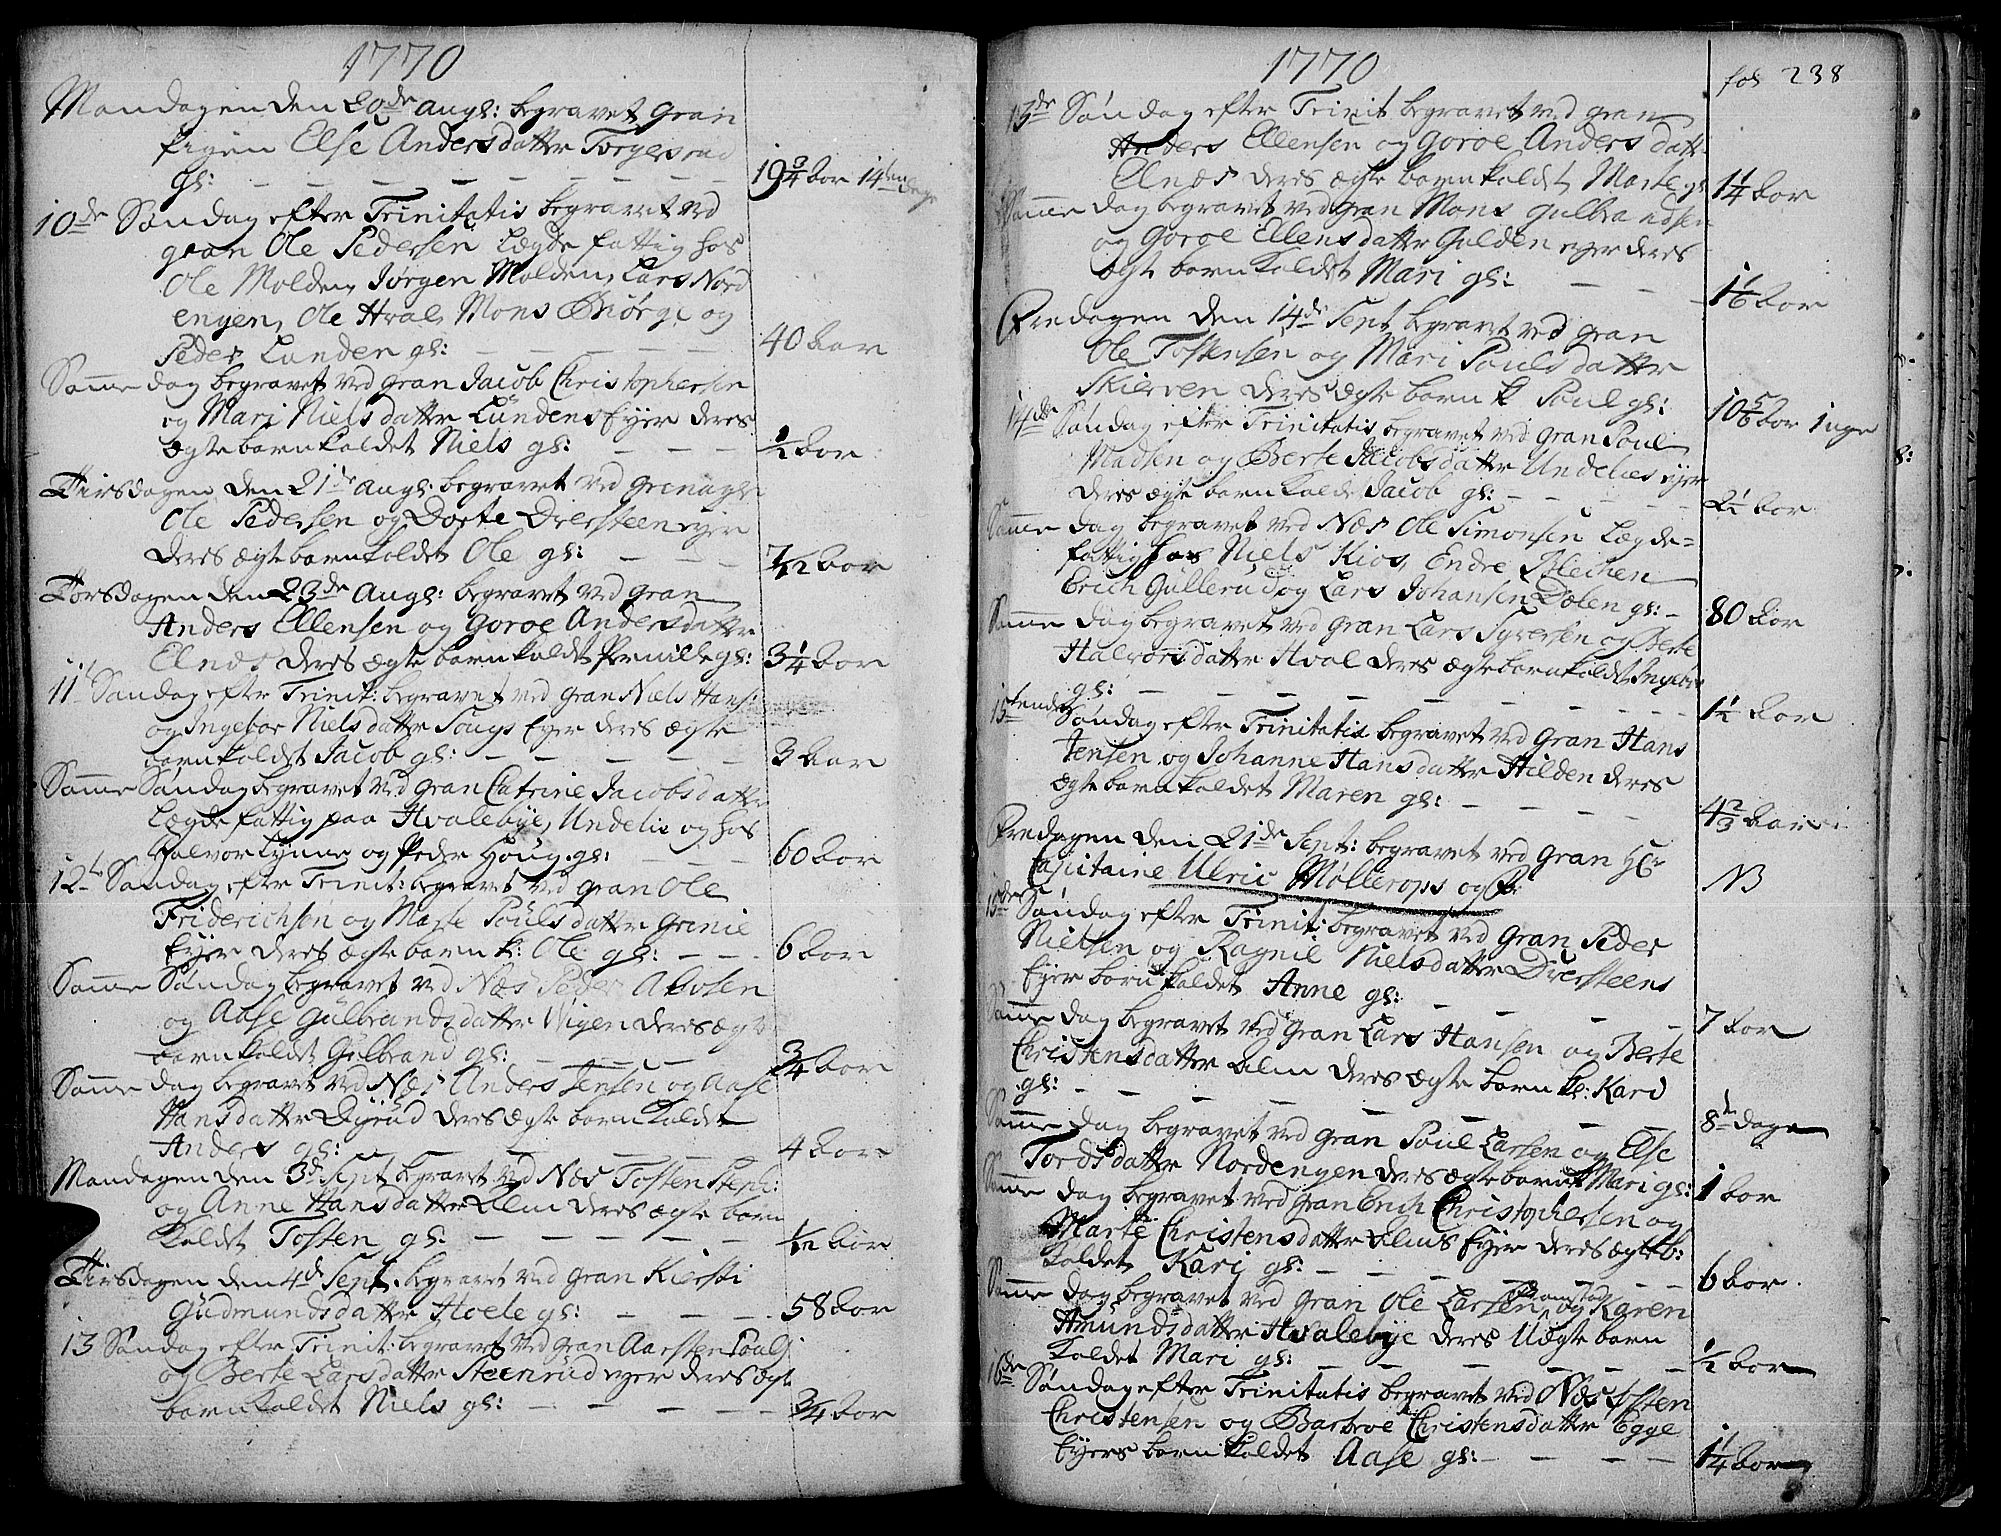 1770
Mandagen den 20de Augs: begravet Gran
Pigen Else Andersdatter Torgersrud
gl: 19 3/4 Aar 14ten dage
10de Søndag efter Trinitatis begravet ved
gran Ole Pedersen Lægdefattig hos
Ole Molden, Jørgen Molden, Lars Nord
engen, Ole Hval, Mons Biørge og
Peder Lunden gl: 40 Aar
Samme dag begravet ved gran Jacob Christophersen
og Mari Nielsdatter Lundens Ejer deres
ægte barn kaldet Niels gl: 1/2 Aar
Tirsdagen den 21de Augs: begravet ved
Ole Pedersen og Dorte Dversteen ejer
deres ægte barn kaldet Ole gl: 7/12 Aar
Torsdagen den 23de Augs: begravet ved gran
Anders Ellensen og Goroe Andersdatter
Elnæs deres ægte barn kaldt Pernille gl: 3 1/4 Aar
11te Søndag efter Trinit: begravet ved gran Niels Hans:
og Ingebor Nielsdatter Ejer deres ægte
barn kaldet Jacob gl: 3 Aar
Samme Søndag begravet ved gran Catrine Jacobsdatter
Lægdefattig paa Hvalebye, Undelie og hos
Halvor Lynne og Peder Houg. gl: 60 Aar
12te Søndag efter Trinit: begravet ved gran Ole
Friderichsen og Marte Poulsdatter Grinie
Ejer deres ægte barn k: Ole gl: 6 Aar
Samme Søndag begravet ved Næs Peder
og Aase Gulbrandsdatter Wigen deres ægte
barn kaldet Gulbrand gl: 3/4 Aar
Samme dag begravet ved Næs Anders Jensen og Aase
Hansdatter Dyrud deres ægte barn kaldet
Anders gl: 4 Aar
Mandagen den 3de Sept begravet ved Næs Tosten Steph:
og Anne Hansdatter Alm deres ægte barn
kaldet Tosten gl: 1/12 Aar
Tirsdagen den 4de Sept. begravet ved gran Kiersti
Gudmundsdatter Hvele gl: 58 Aar
13 Søndag efter Trinit: begravet ved gran Aarsten Poulss
og Berte Larsdatter Steenrud ejer deres ægte
barn kaldet Niels gl: 3/4 Aar
1770
fol 238
13de Søndag efter Trinit begravet ved gran
Anders Ellensen og Goroe Andersdatt
Elnæs deres ægte barn kaldet Marte gl 1 1/4 Aar
Samme dag begravet ved gran Mons Gulbrandsen
og Goroe Ellensdatter Gulden ejer deres
ægte barn kaldet Mari gl: 1 1/6 Aar
Fredagen den 14de Sept begravet ved gran
Ole Tostensen og Mari Poulsdatter
Skierven deres ægte barn k Poul gl: 10 5/6 Aar 1 uge
14de Søndag efter Trinitatis begravet ved gran Poul
Madsen og Berte Jacobsdatter Undelies ejer
deres ægte barn kaldet Jacob gl: 2 1/2 Aar
Samme dag begravet ved Næs Ole Simonsen Lægde=
fattig hos Niels Kios, Endre Blechen
Erich Gullerud og Lars Johansen Dælen gl: 80 Aar
Samme dag begravet ved gran Lars Syversen og Berte
Halvorsdatter Hval deres ægte barn kaldet Ingebor
gl: 1 1/2 Aar
15tende Søndag efter Trinitatis begravet ved gran Hans
Jensen og Johanne Hansdatter Hilden deres
ægte barn kaldet Maren gl: 4 2/3 Aar
Fredagen den 21de Sept: begravet ved gran Hr
Capitaine Ulric Møllerops og Fr: NB
15de Søndag efter Trinit: begravet ved gran Peder
Nielsen og Ragnil Nielsdatter Dversteens
Ejer barn kaldet Anne gl: 7 Aar
Samme dag begravet ved gran Lars Hansen og Berte
Christensdatter Alm deres ægte barn k: Kari
gl: 8te dage
Samme dag begravet ved gran Poul Larsen og Else
Tordsdatter Nordengen deres ægte barn k Mari gl: 1 Aar
Samme dag begravet ved gran Erich Christophersen og
Marte Christensdatter Alms Ejer deres ægte b:
kaldet Kari gl: 6 Aar
Samme dag begravet ved gran Ole Larsen og Karen
Amundsdatter Hvalebye deres Uægte barn
kaldet Mari gl: 1/2 Aar
16de Søndag efter Trinitatis begravet ved Næs Tosten
Christensen og Barbroe Christensdatter Egge
Ejers barn kaldet Aase gl: 1 1/4 Aar